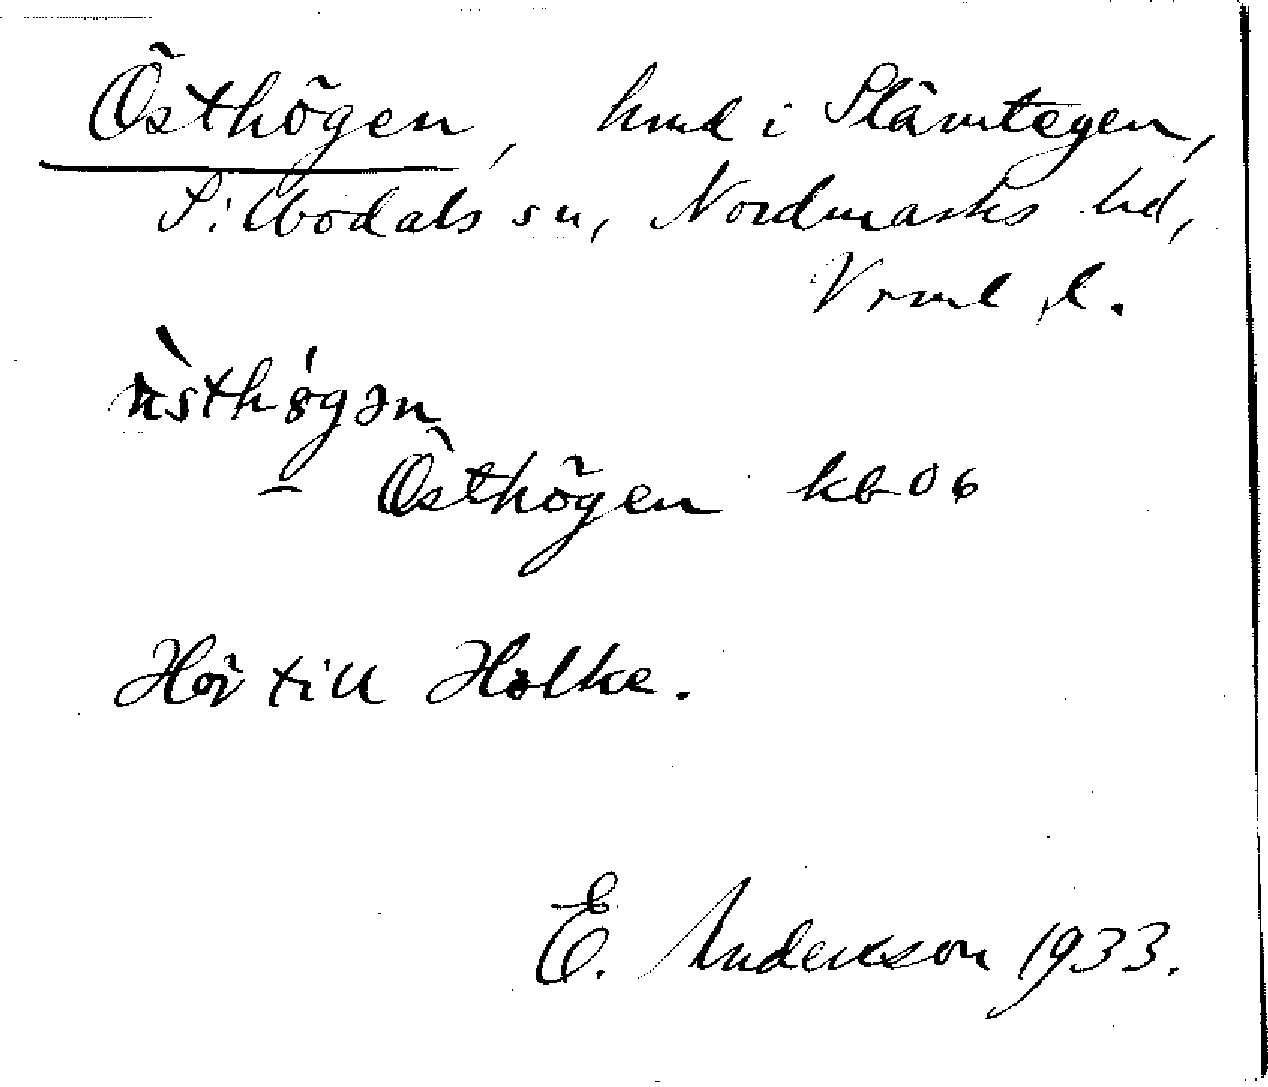 Östhögen, hmd i Slämtegen,
Silbodals sn, Nordmarks hd,
Vrml. l.
östhögən
– Östhögen kb 06
Hör till Holke.
E. Andersson 1933.